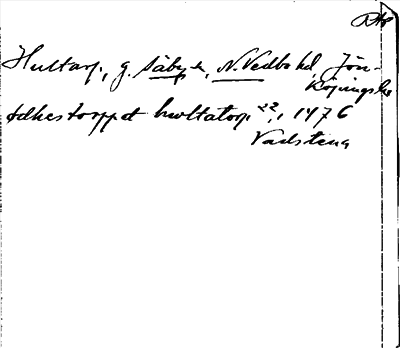 Hultarp, g. Säby sn, N. Vedbo hd, Jön-
köpings l.
edhestorp et hwltatorp 22/2 1476
Vadstena